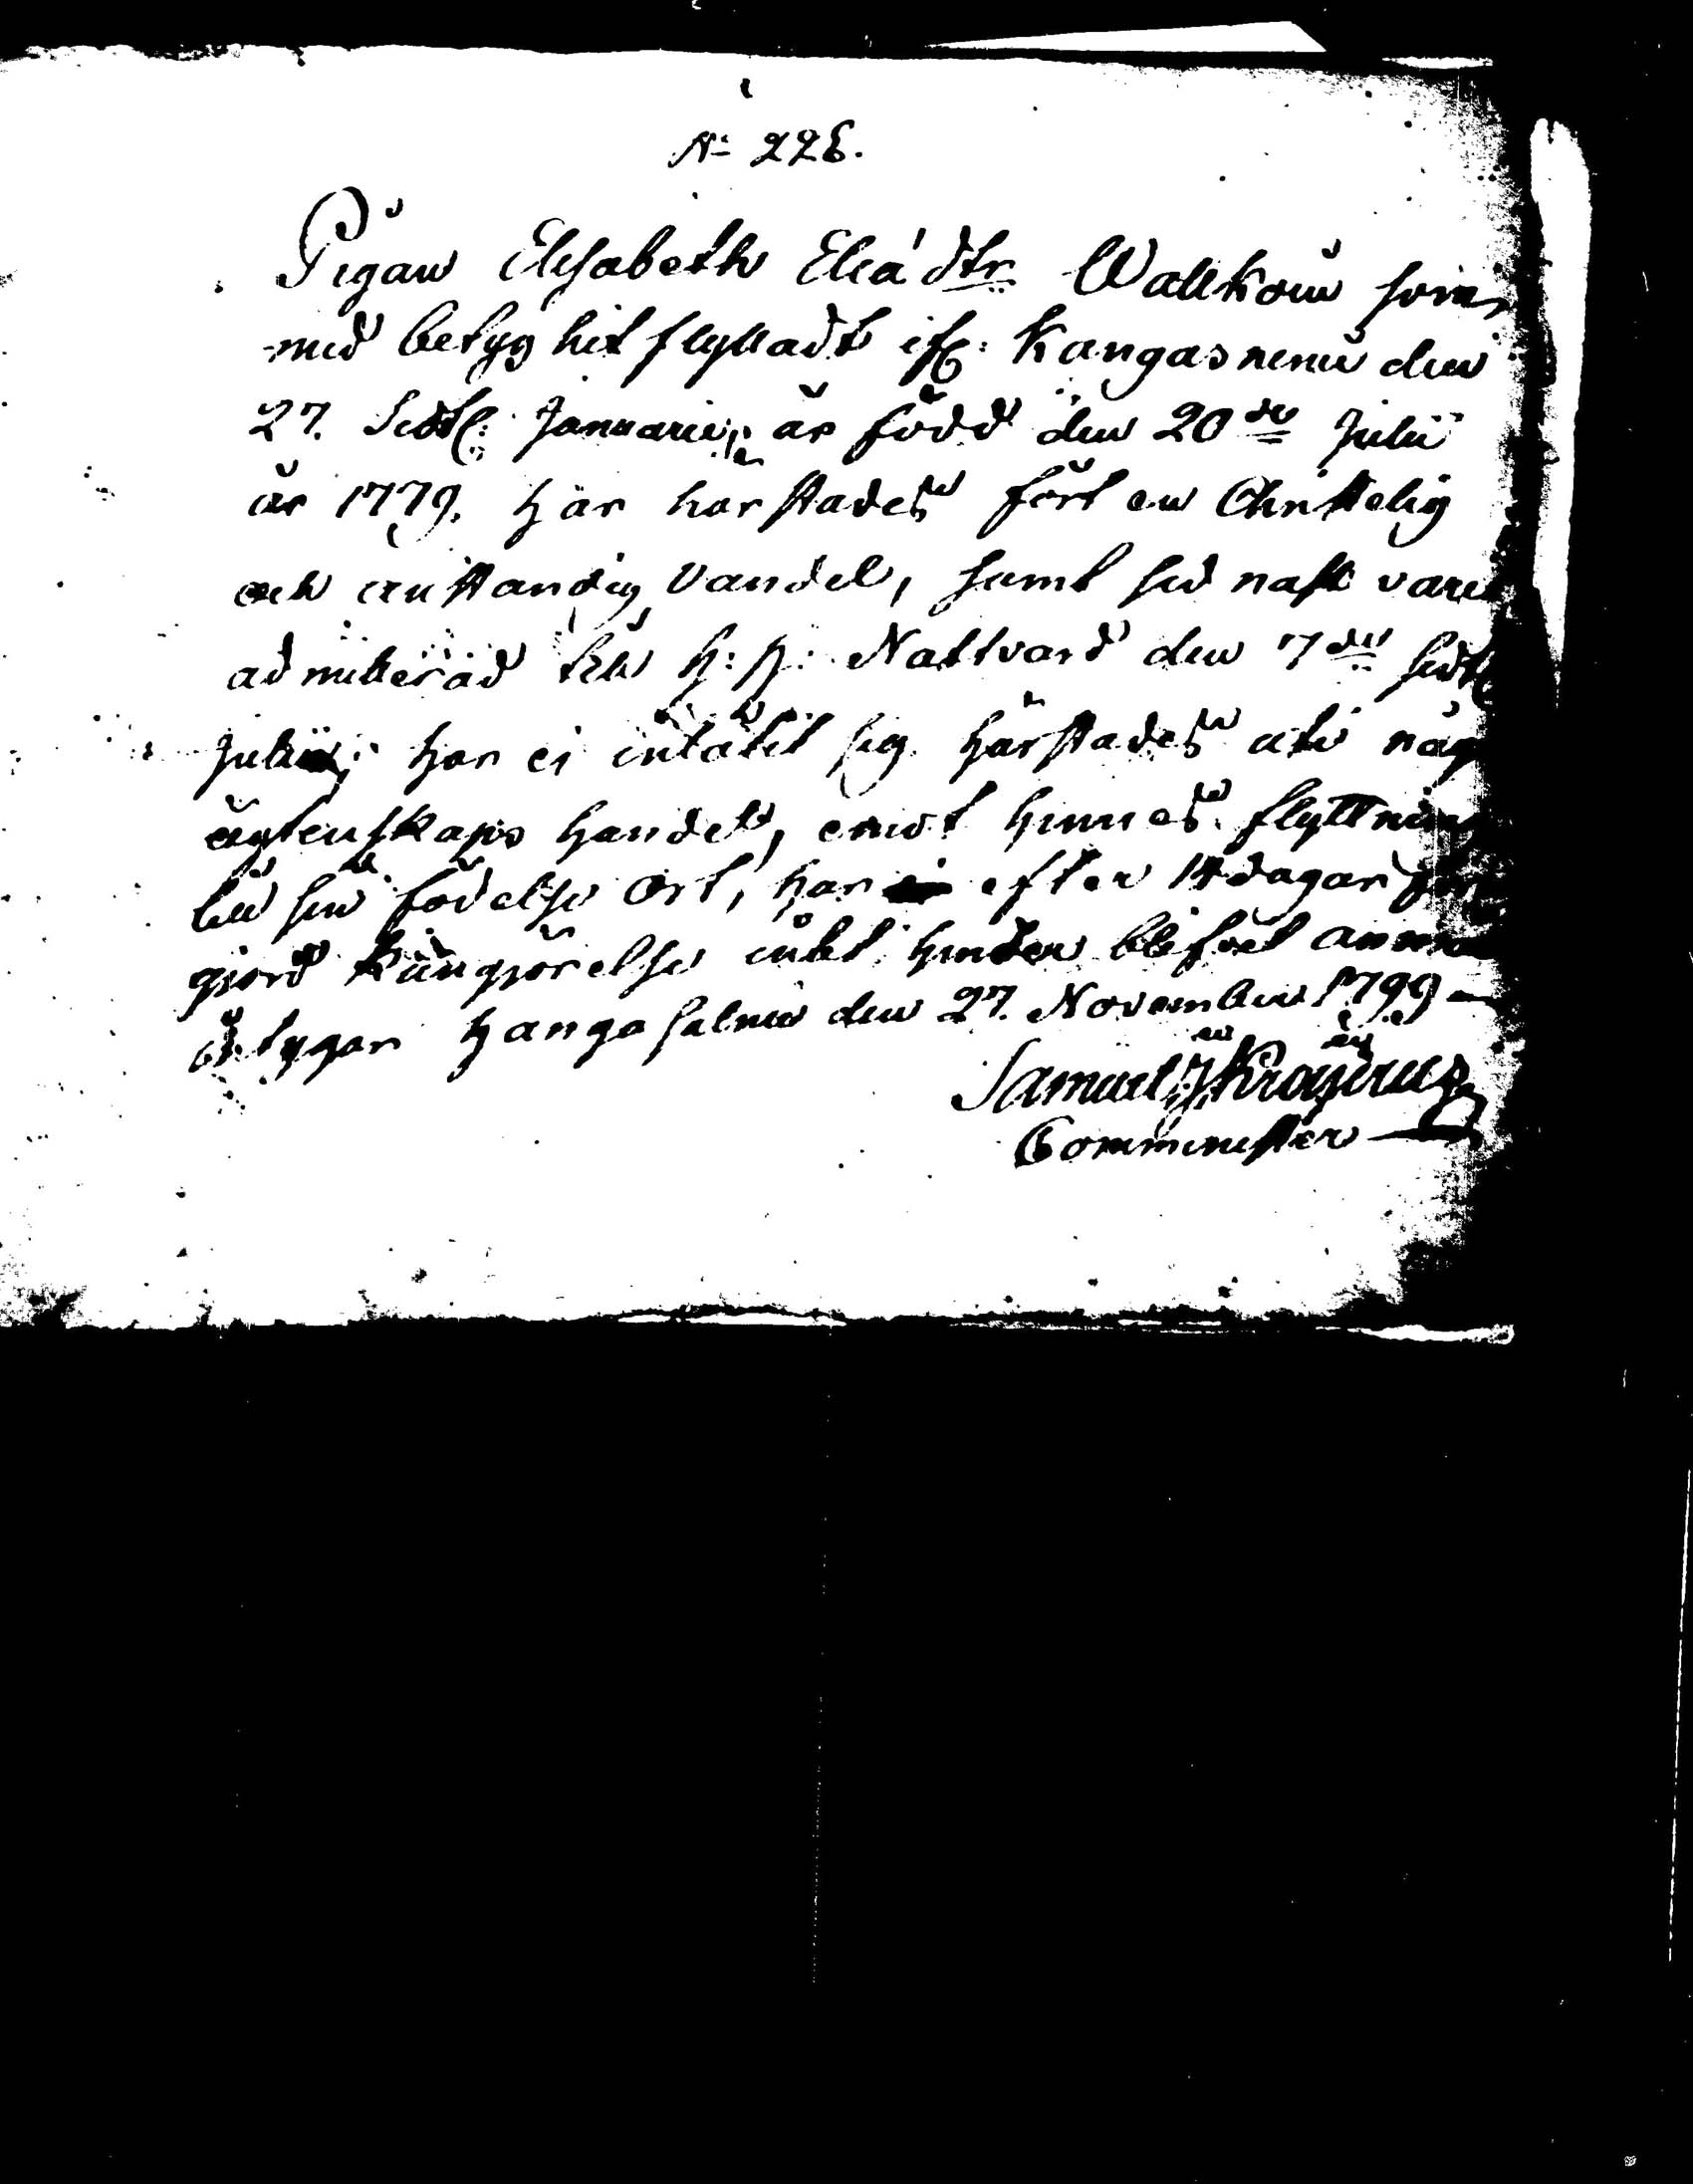 No 226.
Pigan Elisabeth Eliædtr Wallkoin som
med betyg hit flyttadt ifr: Kangasniemi den
27. Sidstl: Januarii; är född den 20de Julii
år 1779. har härstädes fört en Christelig
och anständig vandel, samt sidnast varit
admitterad till H: H: Nattvard den 7de sidstl
Julii; har ei inlåtit sig härstädes uti någ
ägtenskaps handel, emot hennes flyttning
till sin födelse ort, har efter 14 dagar för
gjord kungjörelse intet hinder blifvet anmä
betygar Hangasalmi den 27. November 1799
Samuel Krogerus
Comminister